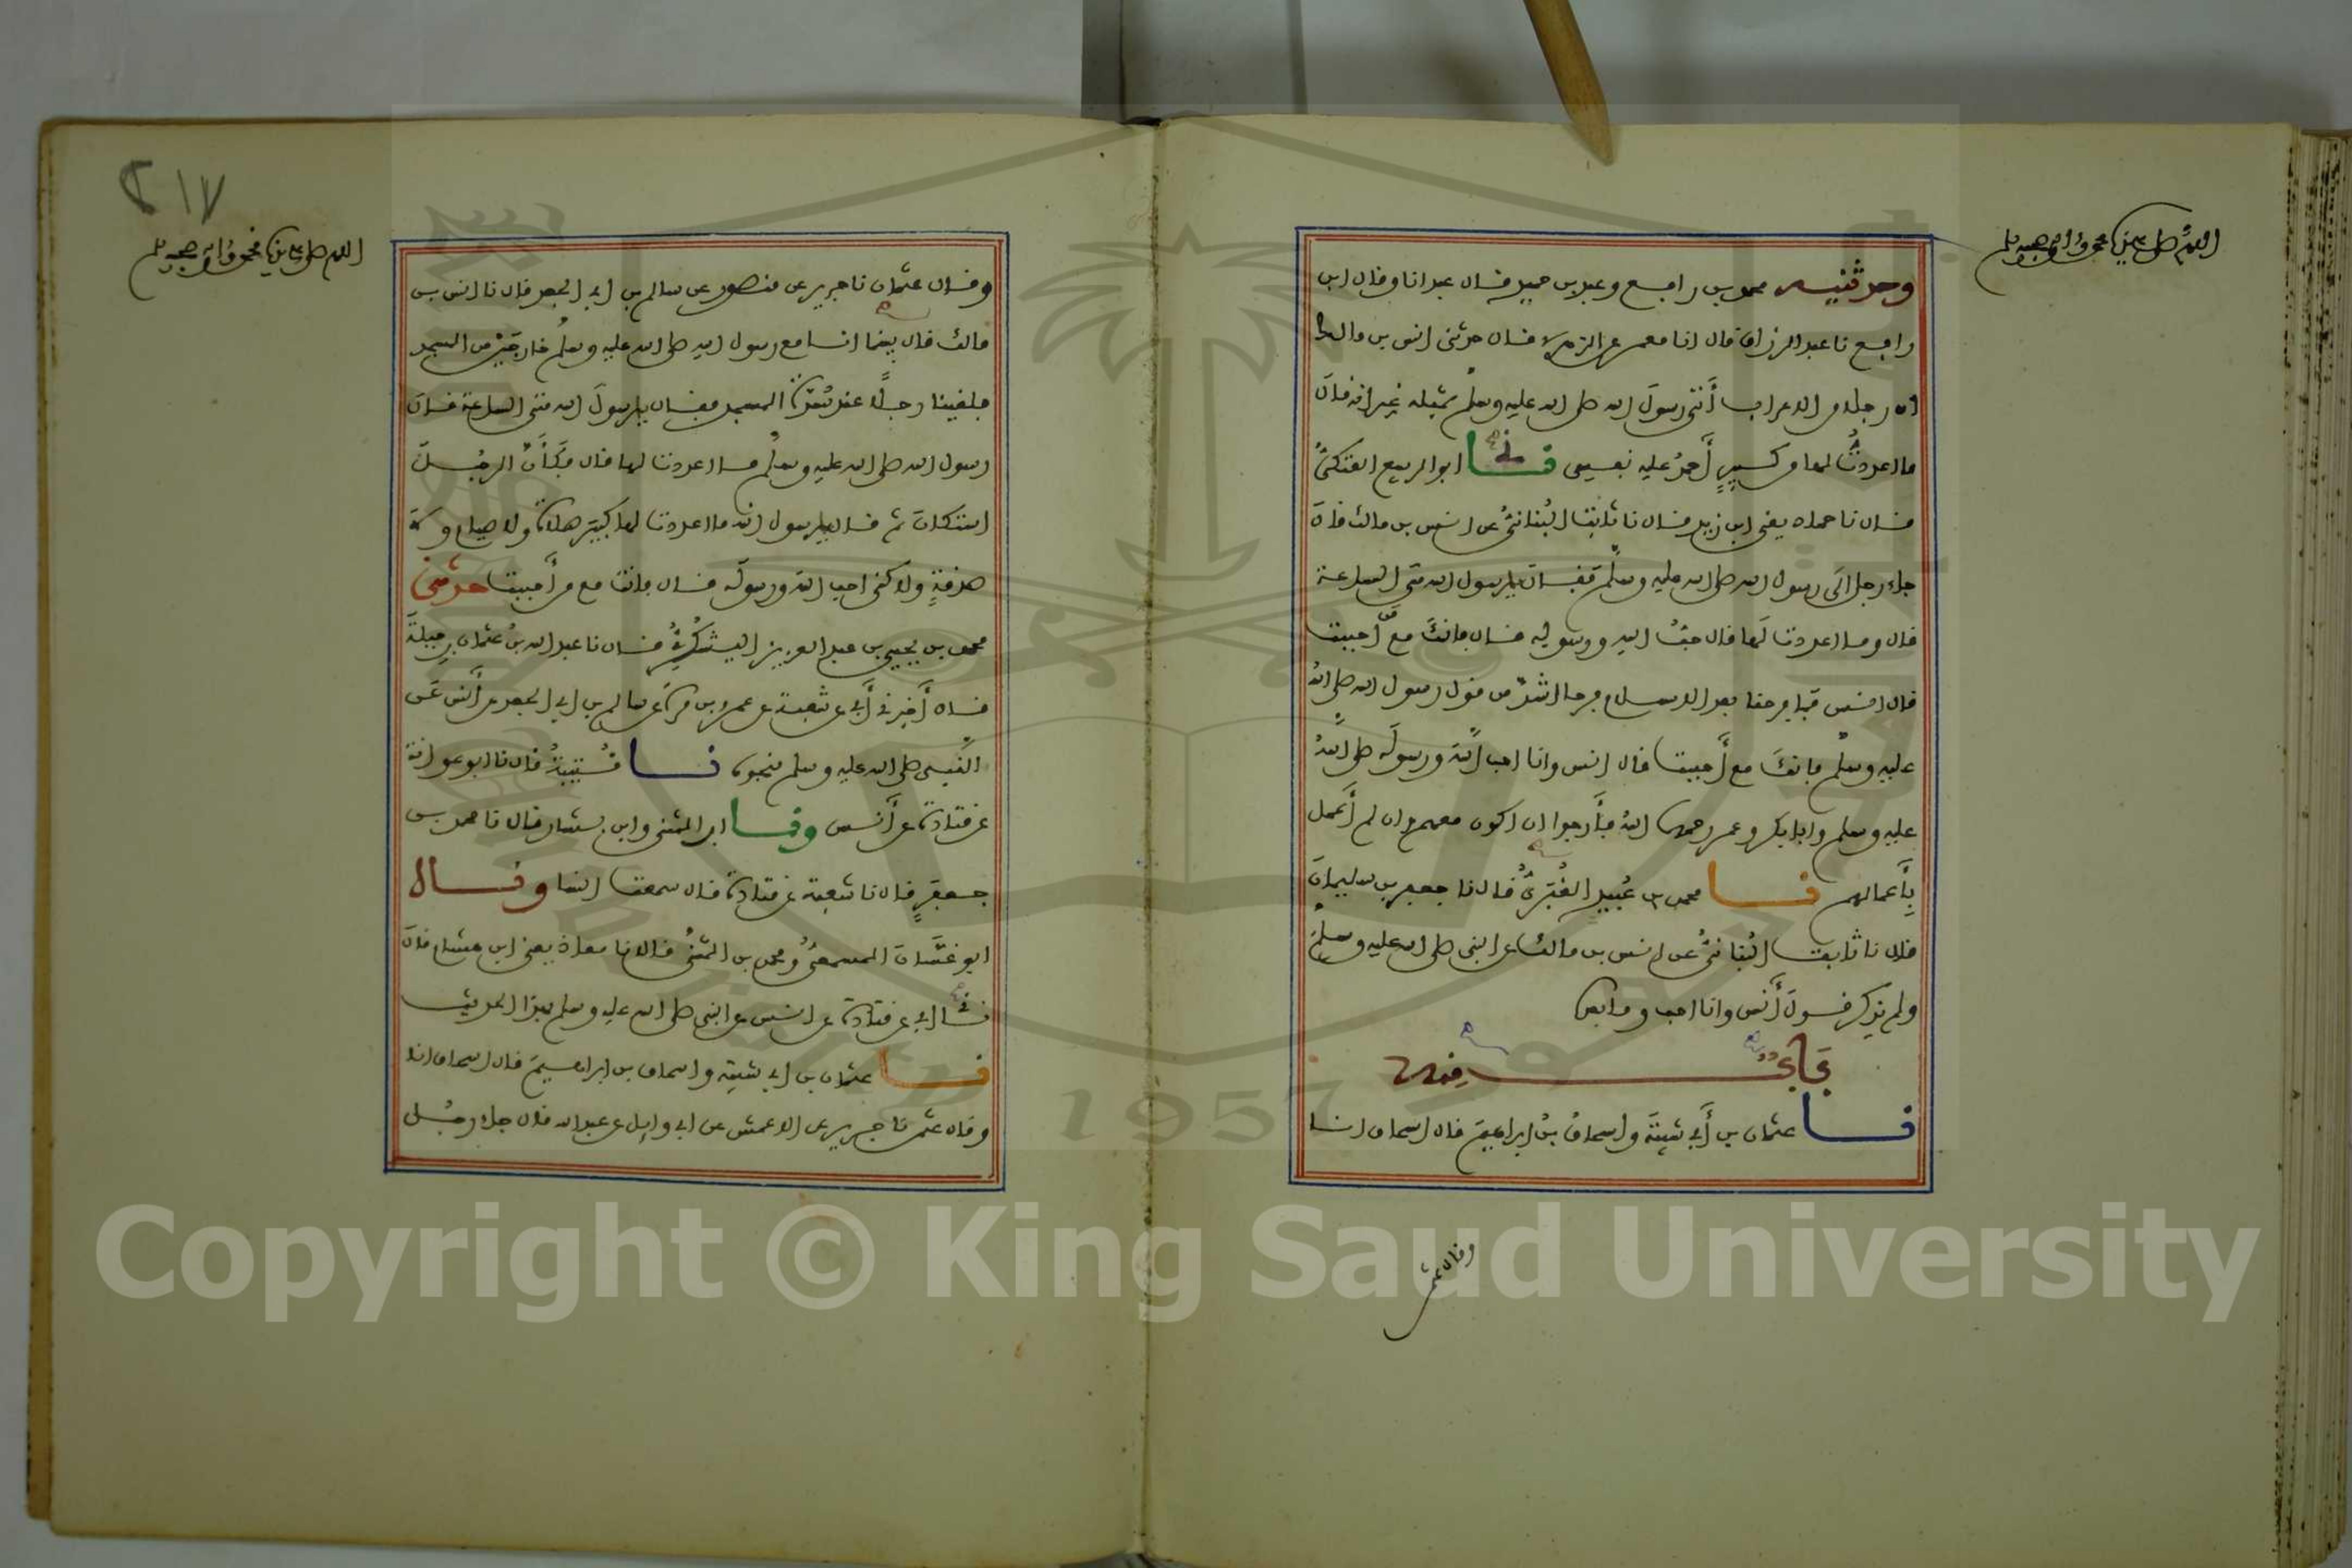 اللهم صل على سيدنا محمد وءاله وصحبه وسلم
وحدثنيه محمد بن رافع وعبد بن حميد قال عبد انا وقال ابن
رافع نا عبد الرزاق قال انا معمر عن الزهري قال حدثني انس بن مالك
ان رجلا من الاعراب أتى رسول الله صلى الله عليه وسلم بمثله غير انه قال
ما اعددت لها من كثير أحمد عليه نفسي نا ابو الربيع العتكي
قال نا حماد يعني ابن زيد قال نا ثابت البناني عن انس بن مالك قال
جاء رجل الى رسول الله صلى الله عليه وسلم فقال يا رسول الله متى الساعة
قال وما اعددت لها قال حب الله ورسوله قال فانك مع من أحببت
قال انس فما فرحنا بعد الاسلام فرحا اشد من قول رسول الله صلى الله
عليه وسلم فانك مع من أحببت قال انس وانا احب الله ورسوله صلى الله
عليه وسلم وابا بكر وعمر رحمهما الله فأرجوا ان اكون معهم وان لم أعمل
بأعمالهم نا محمد بن عبيد الغبري قال نا جعفر بن سليمان
قال نا ثابت البناني عن انس بن مالك عن النبي صلى الله عليه وسلم
ولم يذكر قول أنس وانا احب وما بعده
باب منه
نا عثمان بن أبي شيبة واسحاق بن ابراهيم قال اسحاق انا
وقال عثمن
٢١٧
اللهم صل على سيدنا محمد وءاله وصحبه وسلم
وقال عثمان نا جرير عن منصور عن سالم بن ابي الجعد قال نا انس بن
مالك قال بينما انا مع رسول الله صلى الله عليه وسلم خارجين من المسجد
فلقينا رجلا عند سدة المسجد فقال يا رسول الله متى الساعة قال
رسول الله صلى الله عليه وسلم ما اعددت لها قال فكأن الرجل
استكان ثم قال يا رسول الله ما اعددت لها كبير صلاة ولا صيام ولا
صدقة ولاكني احب الله ورسوله قال فانت مع من أحببت حدثني
محمد بن يحيى بن عبد العزيز اليشكري قال نا عبد الله بن عثمان بن جبلة
قال أخبرني أبي عن شعبة عن عمرو بن مرة عن سالم بن ابي الجعد عن أنس عن
النبي صلى الله عليه وسلم بنحوه نا قتيبة قال نا ابو عوانة
عن قتادة عن أنس ونا ابن المثنى وابن بشار قال نا محمد بن
جعفر قال نا شعبة عن قتادة قال سمعت انسا وقال
ابو غسان المسمعي ومحمد بن المثنى قال نا معاذ يعني ابن هشام قال
نا ابي عن قتادة عن انس عن النبي صلى الله عليه وسلم بهذا الحديث
نا عثمان بن ابي شيبة واسحاق بن ابراهيم قال اسحاق انا
وقال عثمن نا جرير عن الاعمش عن ابي وايل عن عبد الله قال جاء رجل
Copyright © King Saud University
1957